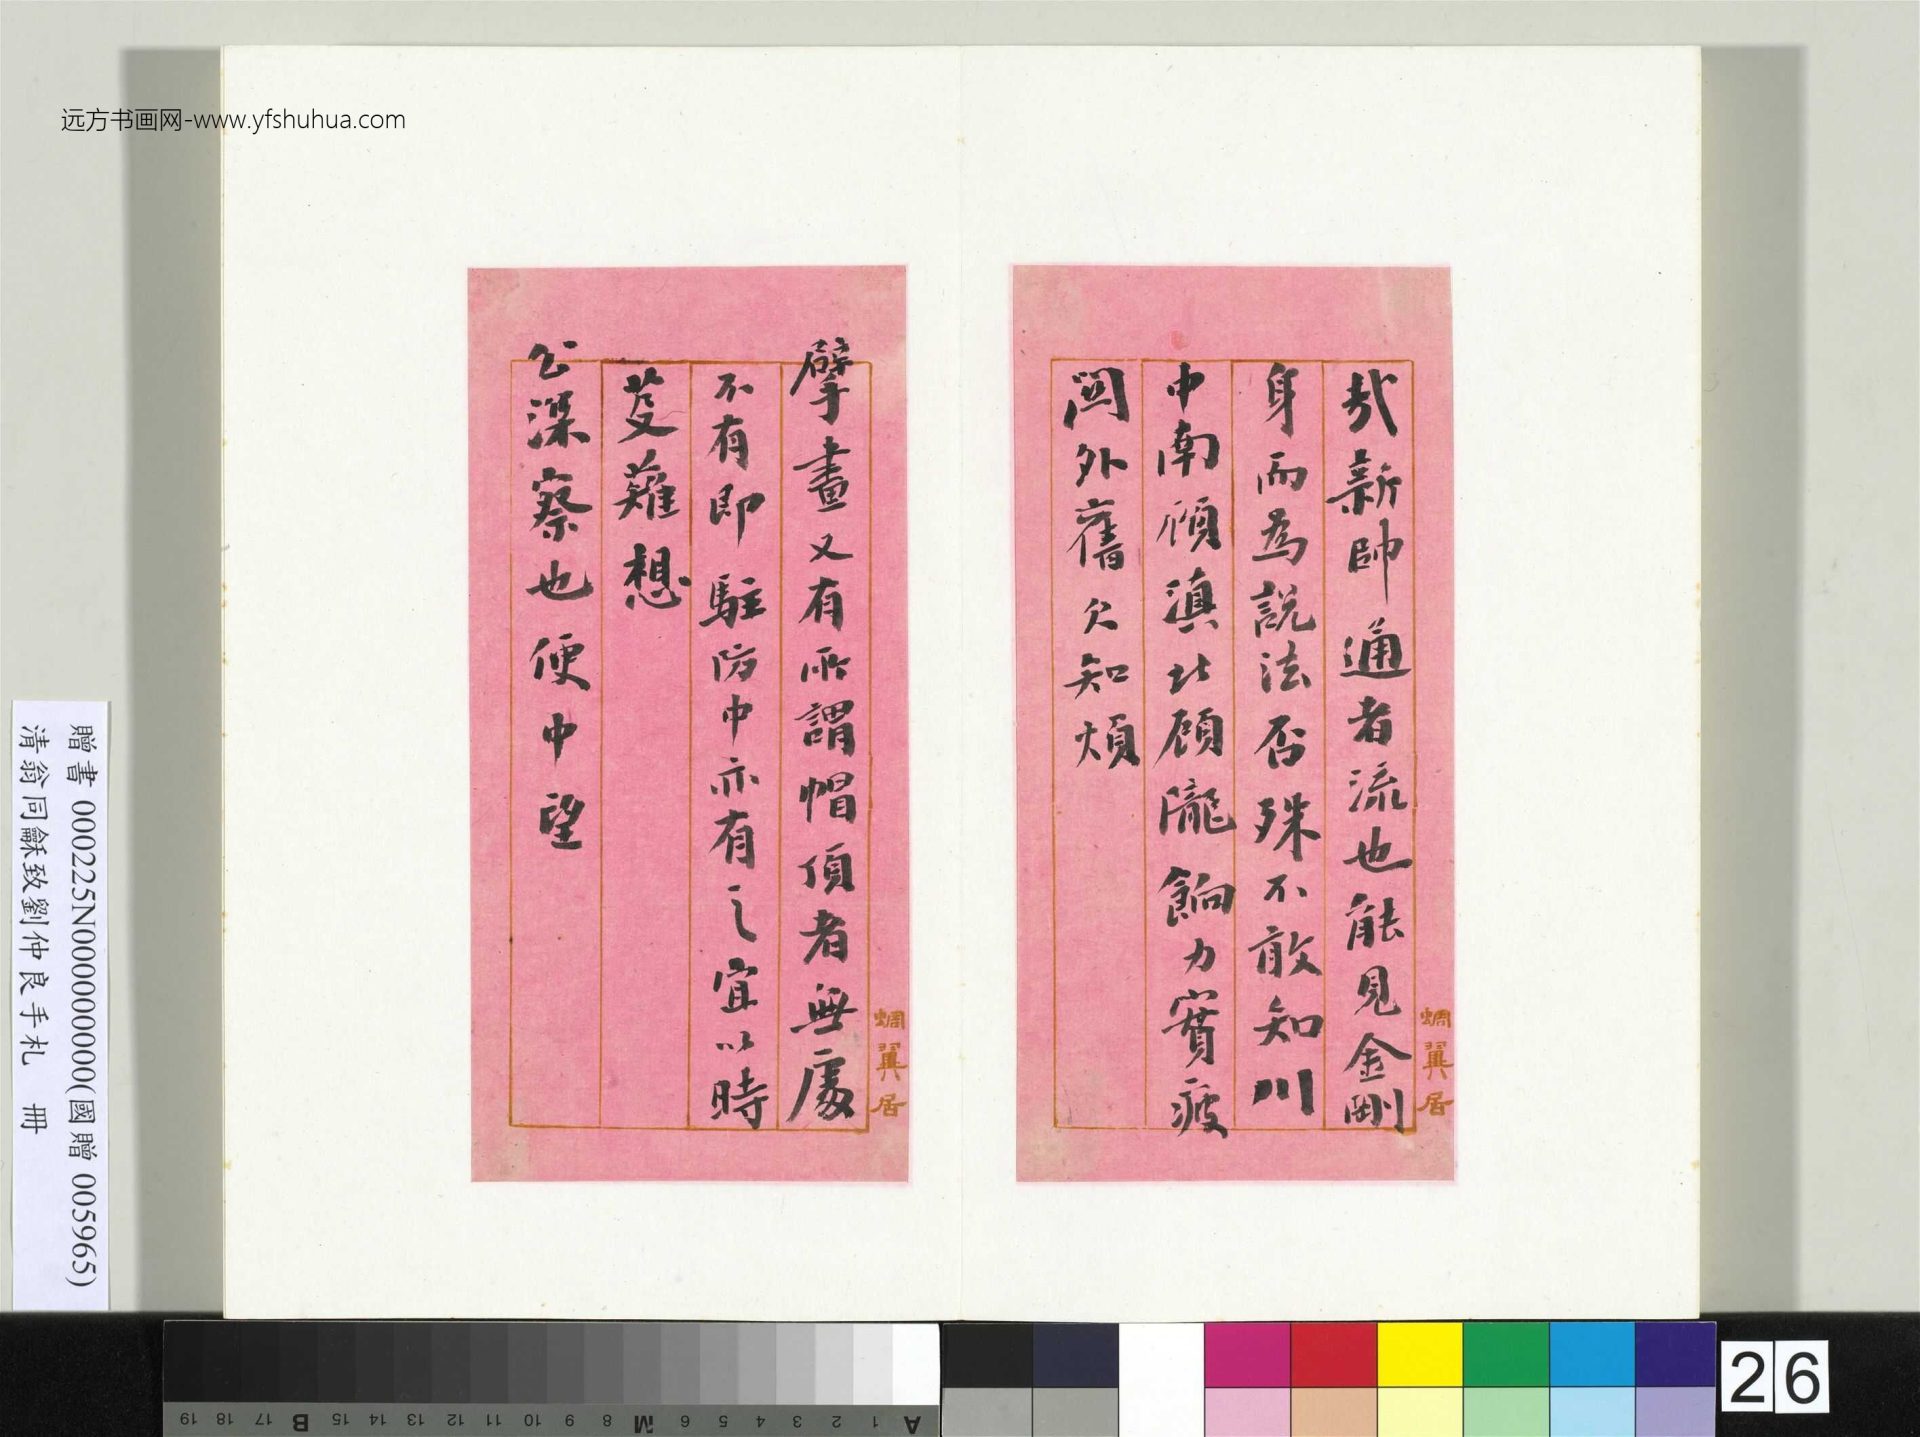 远方书画网-www.yfshuhua.com
哉新帥通者流也能見金剛
身而為說法否殊不敢知川
中南顧滇北顧隴餉力實疲
關外舊欠知煩
蜩翼居
擘畫又有所謂帽頂者無處
不有即駐防中亦有之宜以時
芟薙想
公深察也便中望
蜩翼居
贈書 000225N000000000(國贈 005965)
清翁同龢致劉仲良手札 冊
A 1 2 3 4 5 6 M 8 9 10 11 12 13 14 15 B 17 18 19
26